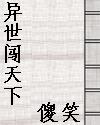 异世闯天下
傻笑